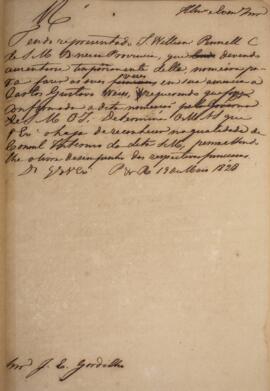 Illmo e Exmo Snr
Tendo representado S. William Runell C
de S. M. B nessa Provincia, que devendo
auzentarse temporariamente della nomeara pa
ra fazer as suas vezes em sua auzencia a
Carlos Gustavo Weiss, requerendo que
confirmada a dita nomeação pelo Governo
de S. M. O I. Determina O M. S. que
V Exa haja de reconhecer na qualidade de
Consul interino da dita S. M., permettindo
lhe o livre desempenho das respectivas funçoens
D. G. a V. Exa P. do Rio 13 de Maio 1828
Snr J. E. Gordilho